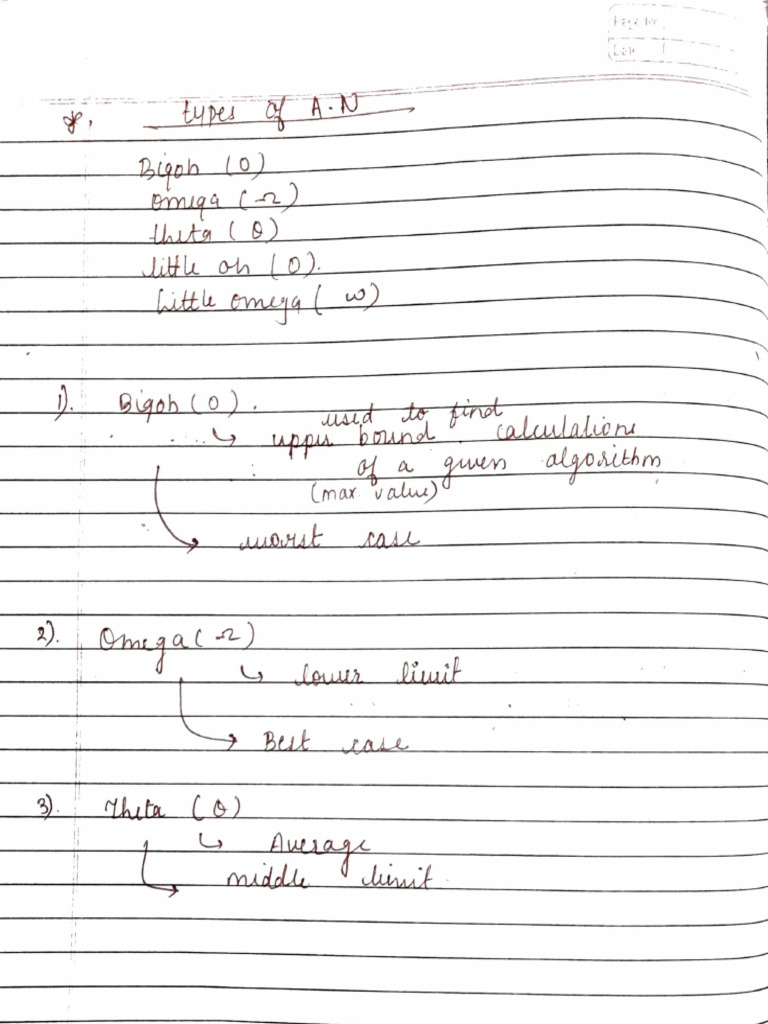 Page No
Date
*. types of A.N
Bigoh (O)
Omega (Ω)
theta (θ)
little oh (O).
Little omega ( ω)
1). Bigoh (O).
used to find
↳ upper bound calculations
of a given algorithm
(max value)
→ worst case
2). Omega (Ω)
↳ lower limit
→ Best case
3). Theta (θ)
↳ Average
→ middle limit